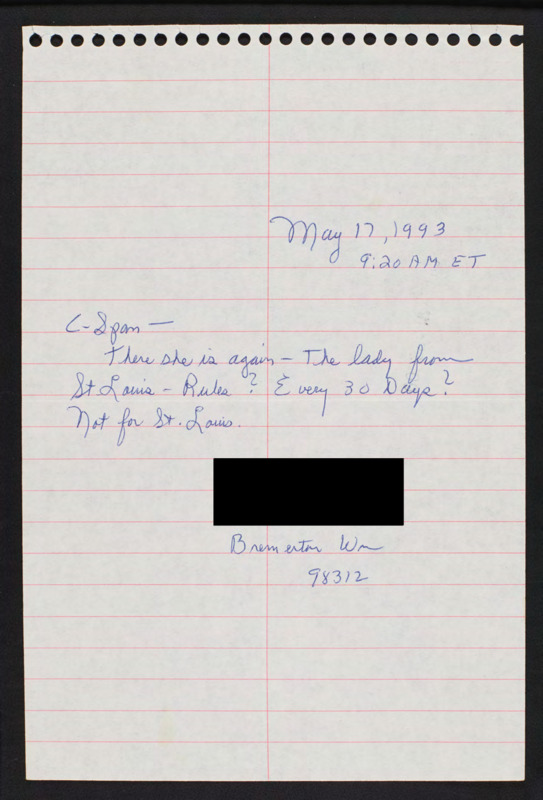 May 17, 1993
9:20 AM ET
C-Span —
There she is again — The lady from
St Louis - Rules? Every 30 Days?
Not for St. Louis.
Bremerton Wn
98312